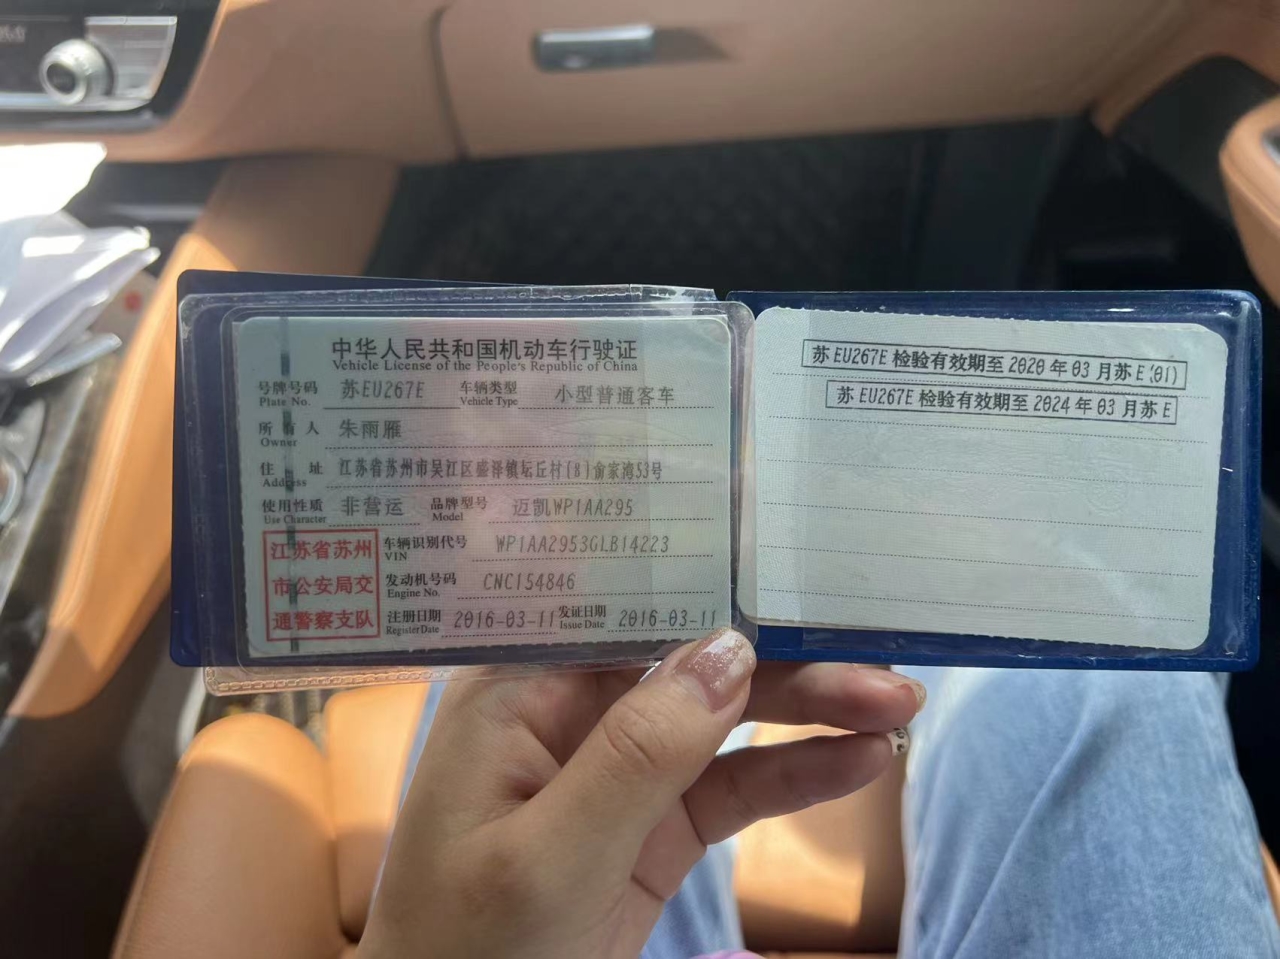 中华人民共和国机动车行驶证
Vehicle License of the People's Republic of China
号牌号码 苏EU267E 车辆类型 小型普通客车
Plate No. Vehicle Type
所有人 朱雨雁
Owner
住址 江苏省苏州市吴江区盛泽镇坛丘村(8)俞家湾53号
Address
使用性质 非营运 品牌型号 迈凯WP1AA295
Use Character Model
江苏省苏州
市公安局交
通警察支队
车辆识别代号 WP1AA2953GLB14223
VIN
发动机号码 CNC154846
Engine No.
注册日期 2016-03-11 发证日期 2016-03-11
Register Date Issue Date
苏EU267E 检验有效期至2020年03月苏E(01)
苏EU267E 检验有效期至2024年03月苏E